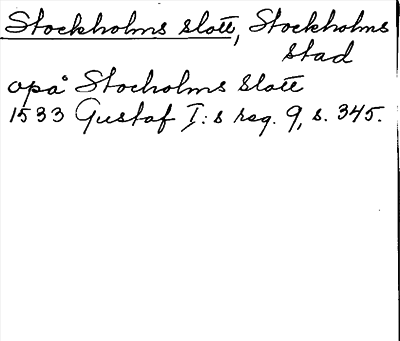 Stockholms slott, Stockholms
stad
opå Stocholms Slott
1533 Gustaf I:s reg. 9, s. 345.